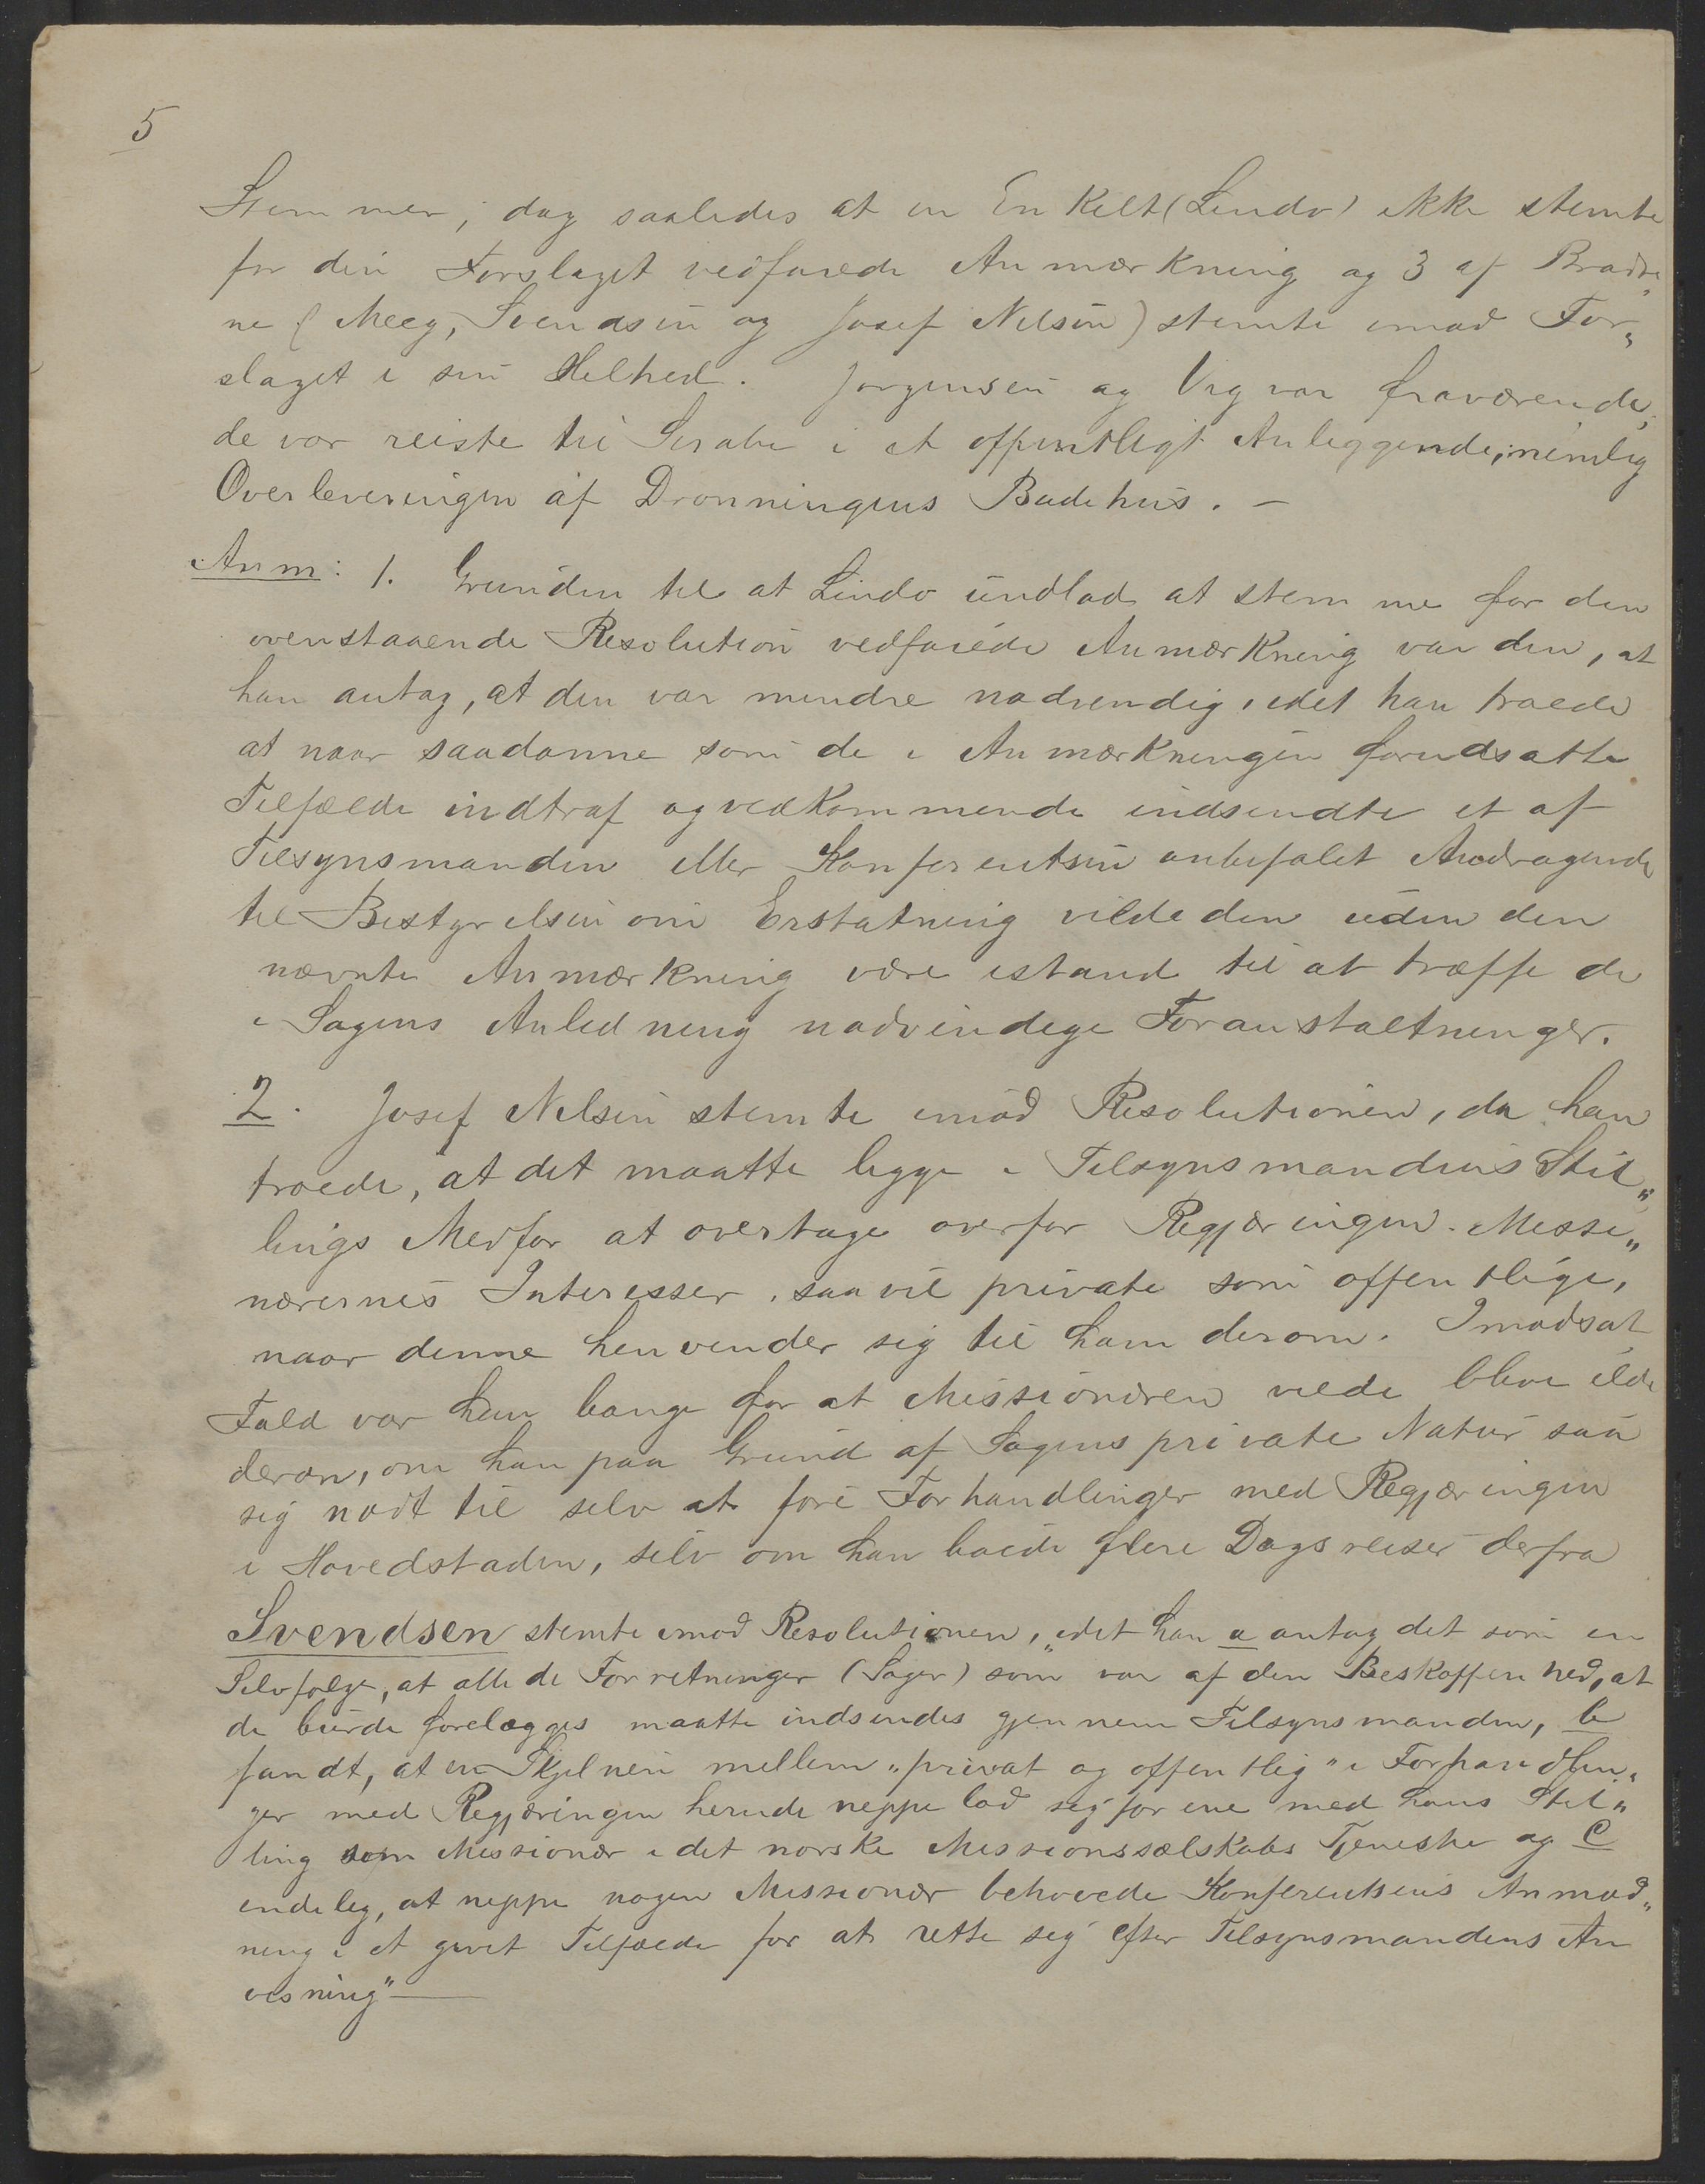 5
Stemmer, dog saaledes at en Enkelt (Lindø) ikke stemte
for den Forslaget vedføiede Anmærkning og 3 af Brødre„
ne (Meeg, Svendsen og Josef Nilsen) stemte imod For„
slaget i sin Helhed. Jørgensen og Vig var fraværende,
de var reiste til Sirabe i et offentligt Anliggende, nemlig
Overleveringen af Dronningens Badehus. –
Anm: 1. Grunden til at Lindø undlod at stemme for den
ovenstaaende Resolution vedføiede Anmærkning var den, at
han antog, at den var mindre nødvendig, idet han troede
at naar saadanne som de i Anmærkningen forudsatte
Tilfælde indtraf og vedkommende indsendte et af
Tilsynsmanden eller Konferentsen anbefalet Andragende
til Bestyrelsen om Erstatning vilde den uden den
nævnte Anmærkning være istand til at træffe de
i Sagens Anledning nødvendige Foranstaltninger.
2. Josef Nilsen stemte imod Resolutionen, da han
troede, at det maatte ligge i Tilsynsmandens Stil„
lings Medfør at overtage overfor Regjæringen Missio„
nærernes Interesser, saavel private som offentlige,
naar denne henvender sig til ham derom. I modsat
Fald var han bange for at Missionæren vilde blive ilde
deran, om han paa Grund af Sagens private Natur saa
sig nødt til selv at føre Forhandlinger med Regjæringen
i Hovedstaden, selv om han boede flere Dagsreiser derfra
Svendsen stemte imod Resolutionen, „idet han a antog det som en
Selvfølge, at alle de Forretninger (Sager) som var af den Beskaffenhed, at
de burde forelægges maatte indsendes gjennem Tilsynsmanden, b
fandt, at en Skjelnen mellem „privat og offentlig" i Forhandlin„
ger med Regjæringen herude neppe lod sig forene med hans Stil„
ling som Missionær i det norske Missionssælskabs Tjeneste og c
endelig, at neppe nogen Missionær behøvede Konferentsens Anmod„
ning i et givet Tilfælde for at rette sig efter Tilsynsmandens An
visning" —